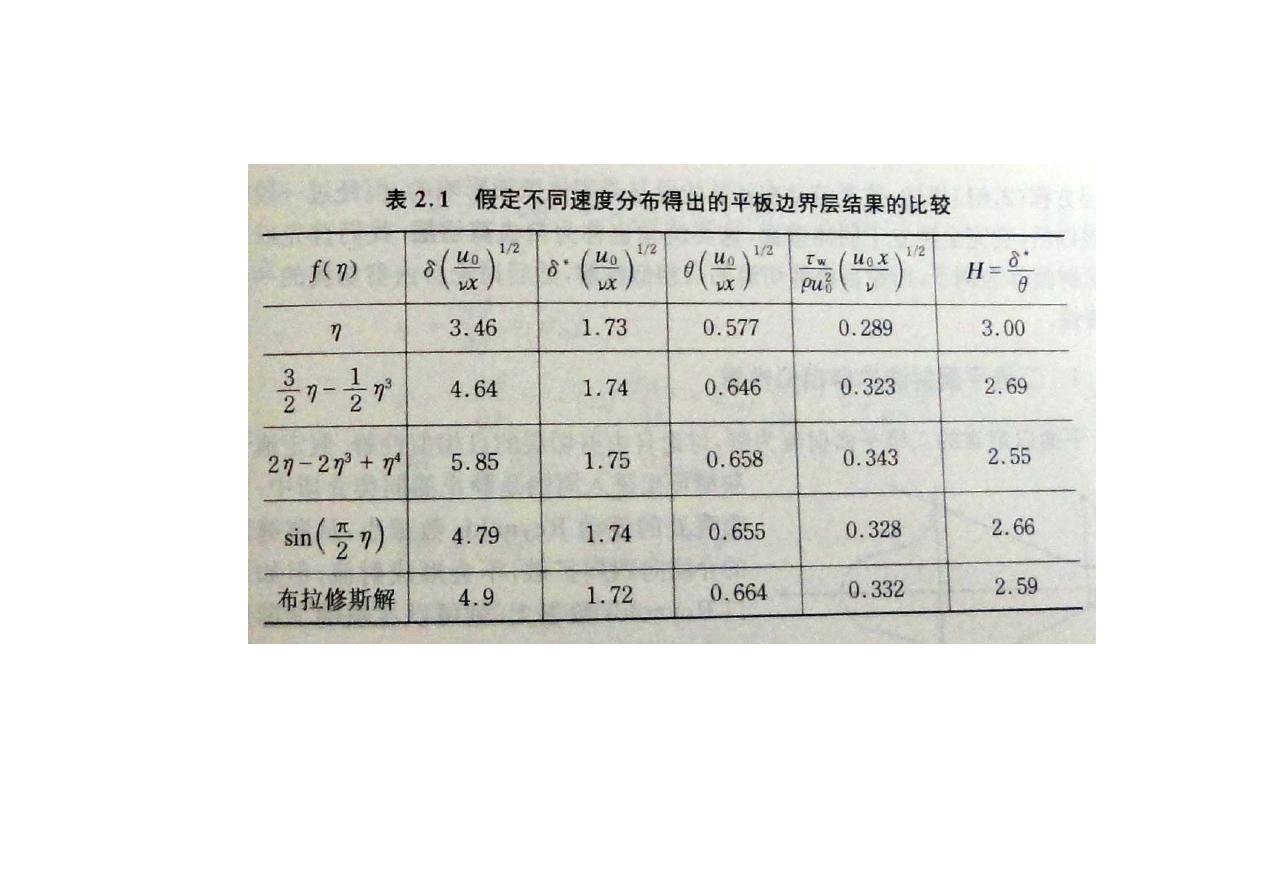 表 2.1 假定不同速度分布得出的平板边界层结果的比较
f(η) δ(u₀/νx)^1/2 δ*(u₀/νx)^1/2 θ(u₀/νx)^1/2 τw/ρu₀²(u₀x/ν)^1/2 H=δ*/θ
η 3.46 1.73 0.577 0.289 3.00
3/2 η − 1/2 η³ 4.64 1.74 0.646 0.323 2.69
2η − 2η³ + η⁴ 5.85 1.75 0.658 0.343 2.55
sin(π/2 η) 4.79 1.74 0.655 0.328 2.66
布拉修斯解 4.9 1.72 0.664 0.332 2.59